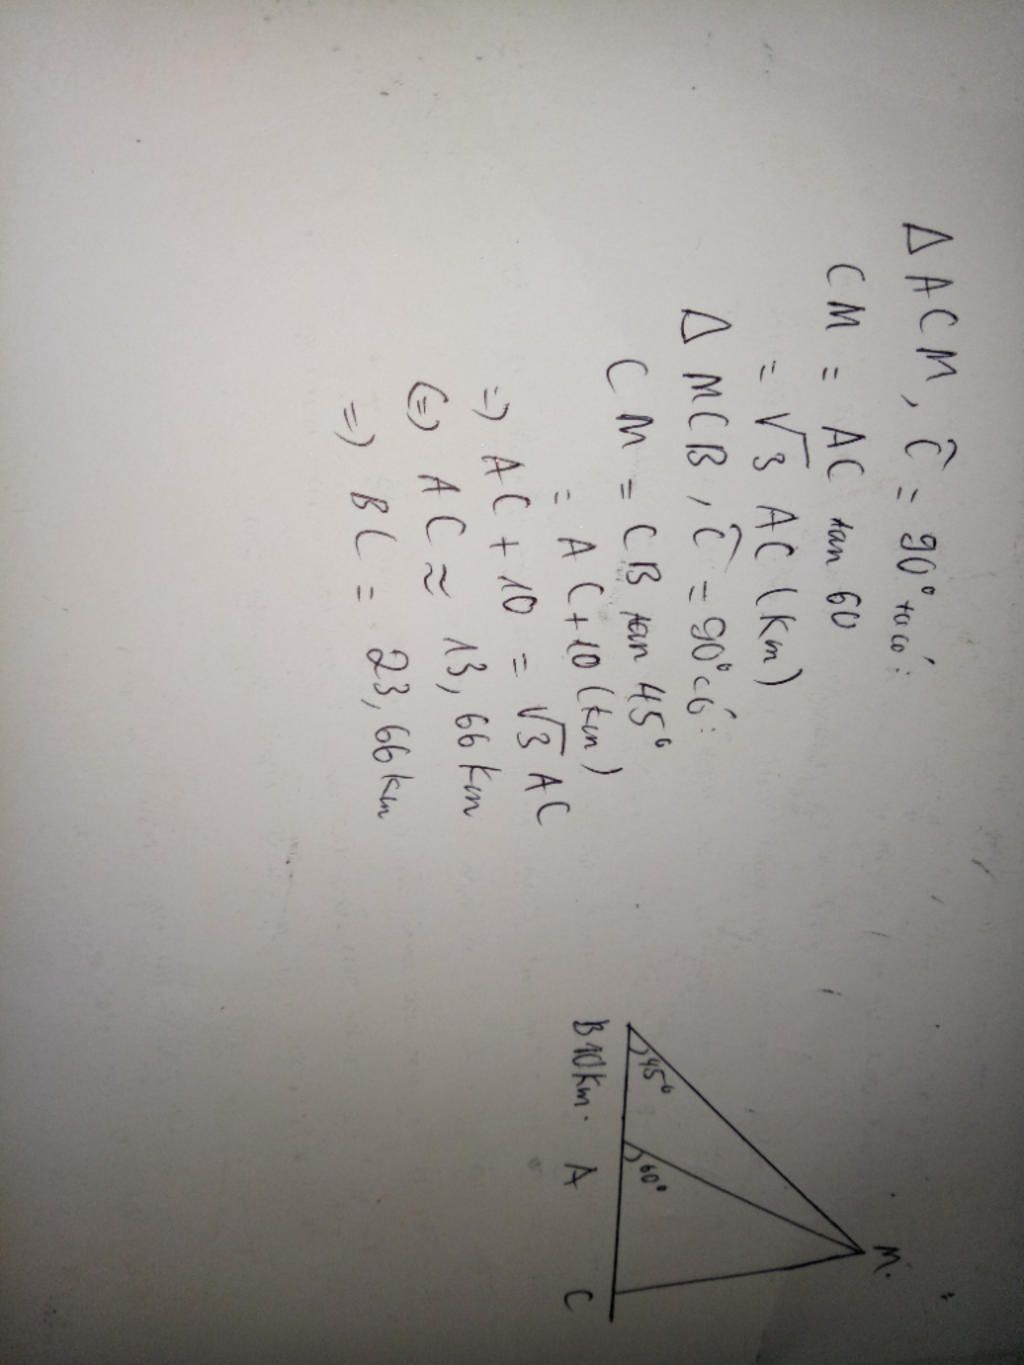 Δ ACM, Ĉ = 90° ta có:
CM = AC tan 60
= √3 AC (km)
Δ MCB, Ĉ = 90° có:
CM = CB tan 45°
= AC + 10 (km)
=> AC + 10 = √3 AC
(=) AC ≈ 13,66 km
=> BC = 23,66 km
M.
45°
60°
B 10km. A C